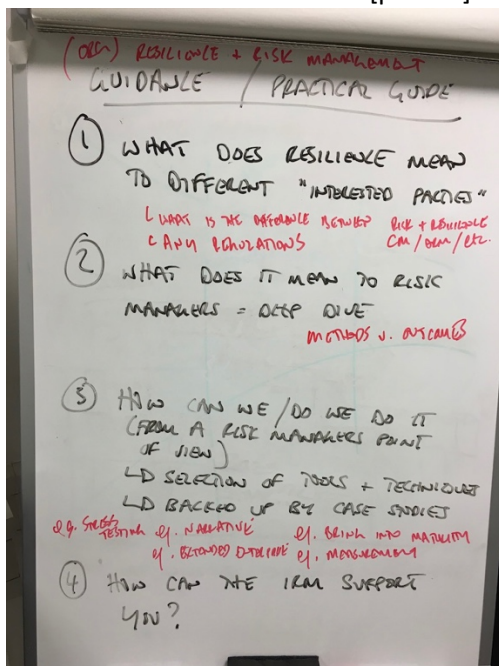 (ORG) RESILIENCE + RISK MANAGEMENT
GUIDANCE / PRACTICAL GUIDE
① WHAT DOES RESILIENCE MEAN
TO DIFFERENT "INTERESTED PARTIES"
WHAT IS THE DIFFERENCE BETWEEN RISK + RESILIENCE
ANY REGULATIONS CM / ERM / ETC.
② WHAT DOES IT MEAN TO RISK
MANAGERS = DEEP DIVE
METHODS V. OUTCOMES
③ HOW CAN WE / DO WE DO IT
(FROM A RISK MANAGERS POINT
OF VIEW)
SELECTION OF TOOLS + TECHNIQUES
BACKED UP BY CASE STUDIES
e.g. STRESS TESTING e.g. NARRATIVE e.g. BRING INTO MATURITY
e.g. EXTENDED ENTERPRISE e.g. MEASUREMENT
④ HOW CAN THE IRM SUPPORT
YOU?